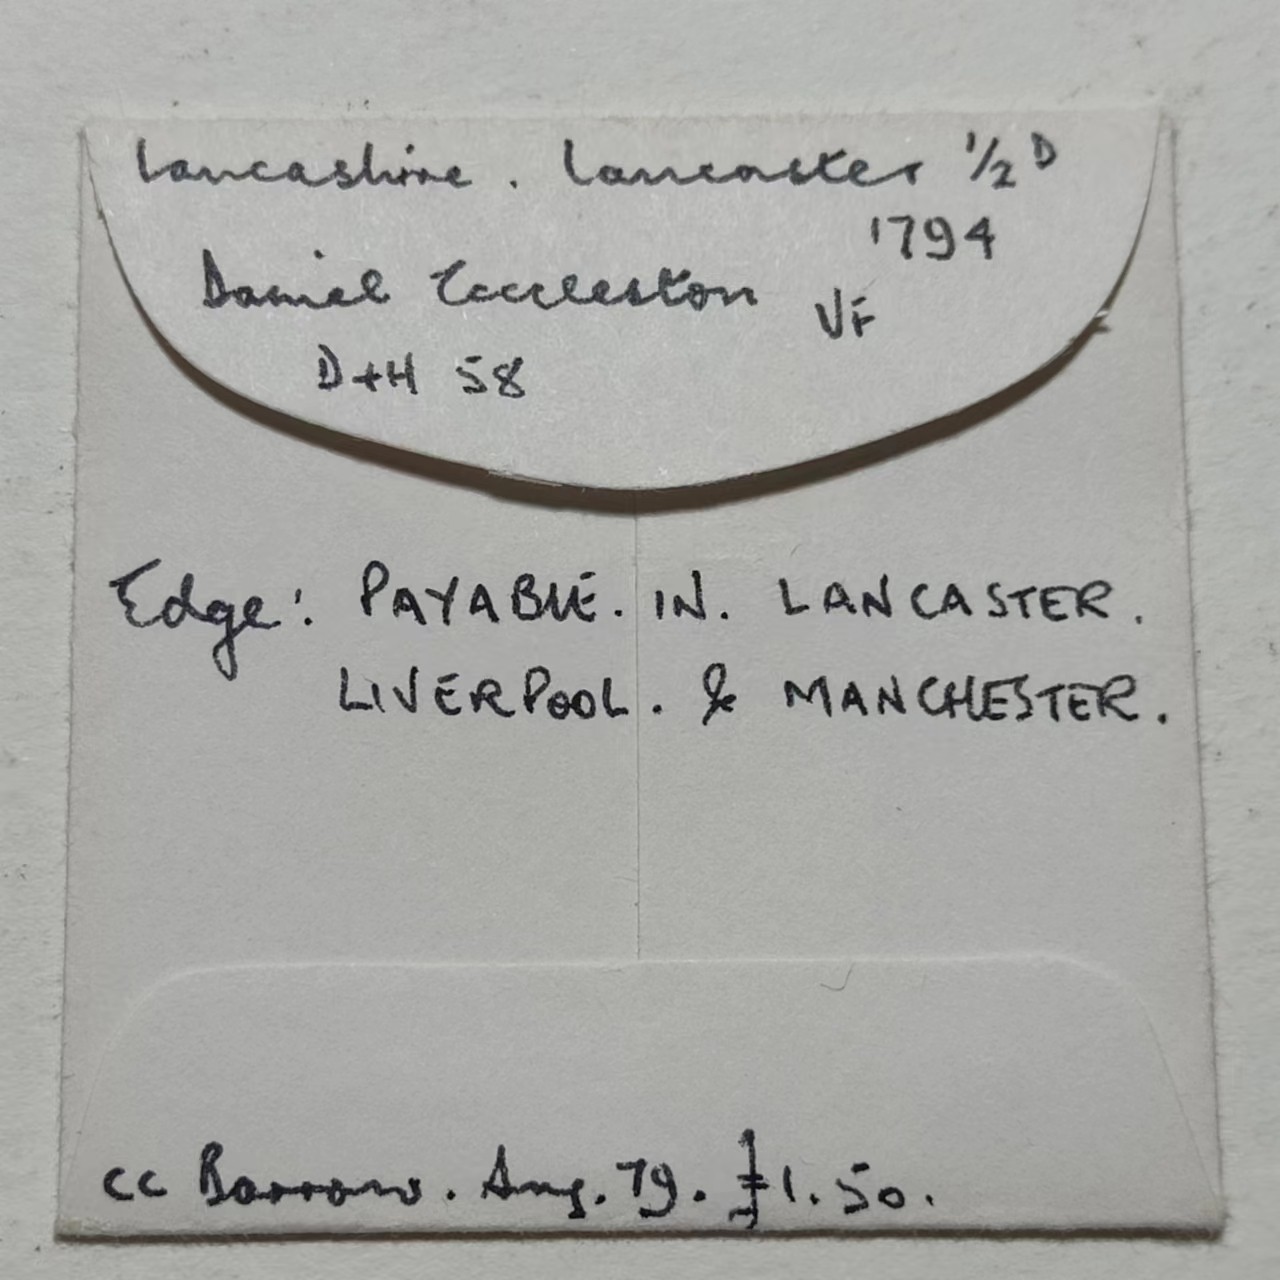 Lancashire. Lancaster 1/2 D
1794
Daniel Eccleston VF
D+H 58
Edge: PAYABLE. IN. LANCASTER.
LIVERPOOL. & MANCHESTER.
CC Barrow. Aug. 79. £1.50.